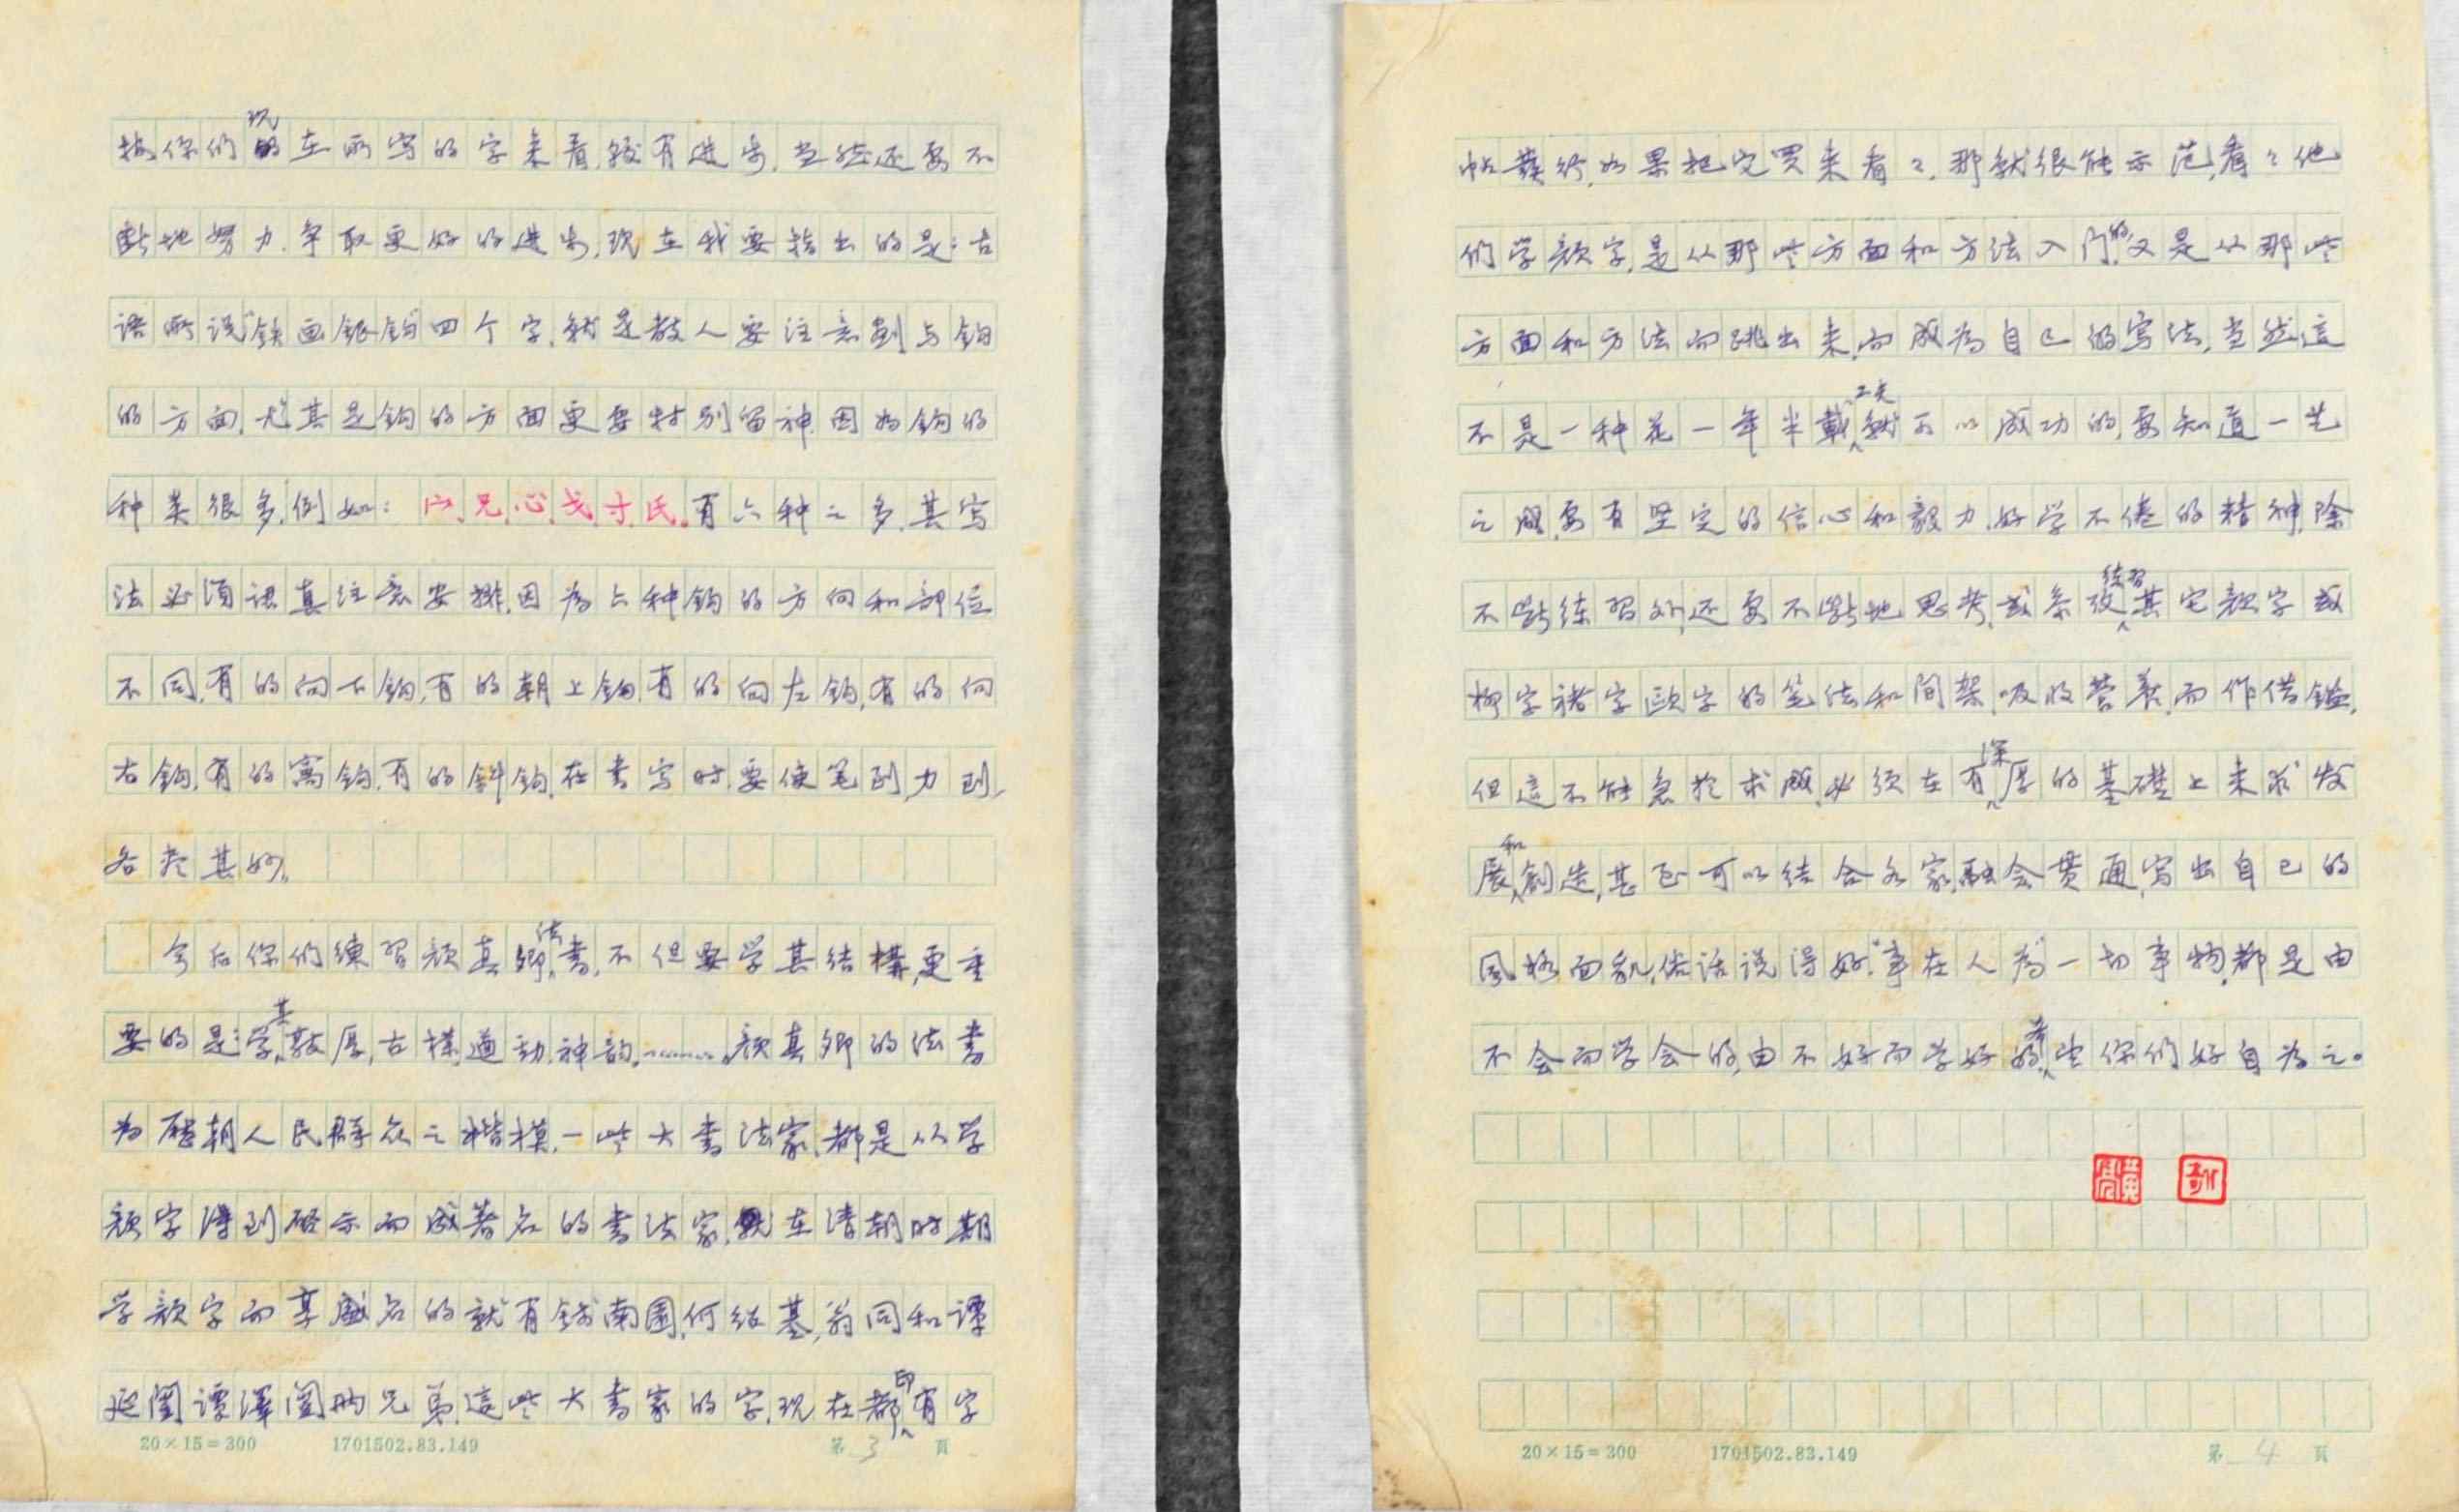 按你们现在所写的字来看,较有进步.当然还要不
断地努力.争取更好的进步.现在我要指出的是:古
语所说"铁画银钩"四个字.就是教人要注意到与钩
的方面.尤其是钩的方面更要特别留神.因为钩的
种类很多.例如:宀.兄.心.戈.寸.氏.有六种之多.其写
法必须认真注意安排.因为六种钩的方向和部位
不同.有的向下钩,有的朝上钩.有的向左钩,有的向
右钩.有的窝钩.有的斜钩.在书写时.要使笔到,力到,
各尽其妙.
今后你们练習颜真卿法书,不但要学其结構,更重
要的是:学其敦厚,古樸,遒劲,神韵.………颜真卿的法书
为歷朝人民群众之楷模.一些大书法家,都是从学
颜字得到啓示而成著名的书法家.就在清朝时期
学颜字而享盛名的就有钱南園,何绍基,翁同和譚
延闓譚澤闓两兄弟.這些大书家的字.现在都印有字
第3頁
20×15=300 1701502.83.149
帖發行.如果把它買来看々.那就很能示范,看々他
们学颜字.是从那些方面和方法入门的,又是从那些
方面和方法而跳出来.而成为自己的写法.当然這
不是一种花一年半載工夫就可以成功的.要知道一艺
之成.要有坚定的信心和毅力.好学不倦的精神.除
不断练習外,还要不断地思考.或参攷练習其它颜字或
柳字褚字歐字的笔法和间架.吸收营养.而作借鑑.
但這不能急於求成.必须在有深厚的基礎上来求发
展和創造,甚至可以结合各家,融会贯通,写出自己的
風格面貌,俗话说得好"事在人為"一切事物,都是由
不会而学会的,由不好而学好的,希望你们好自为之。
第4頁
20×15=300 1701502.83.149